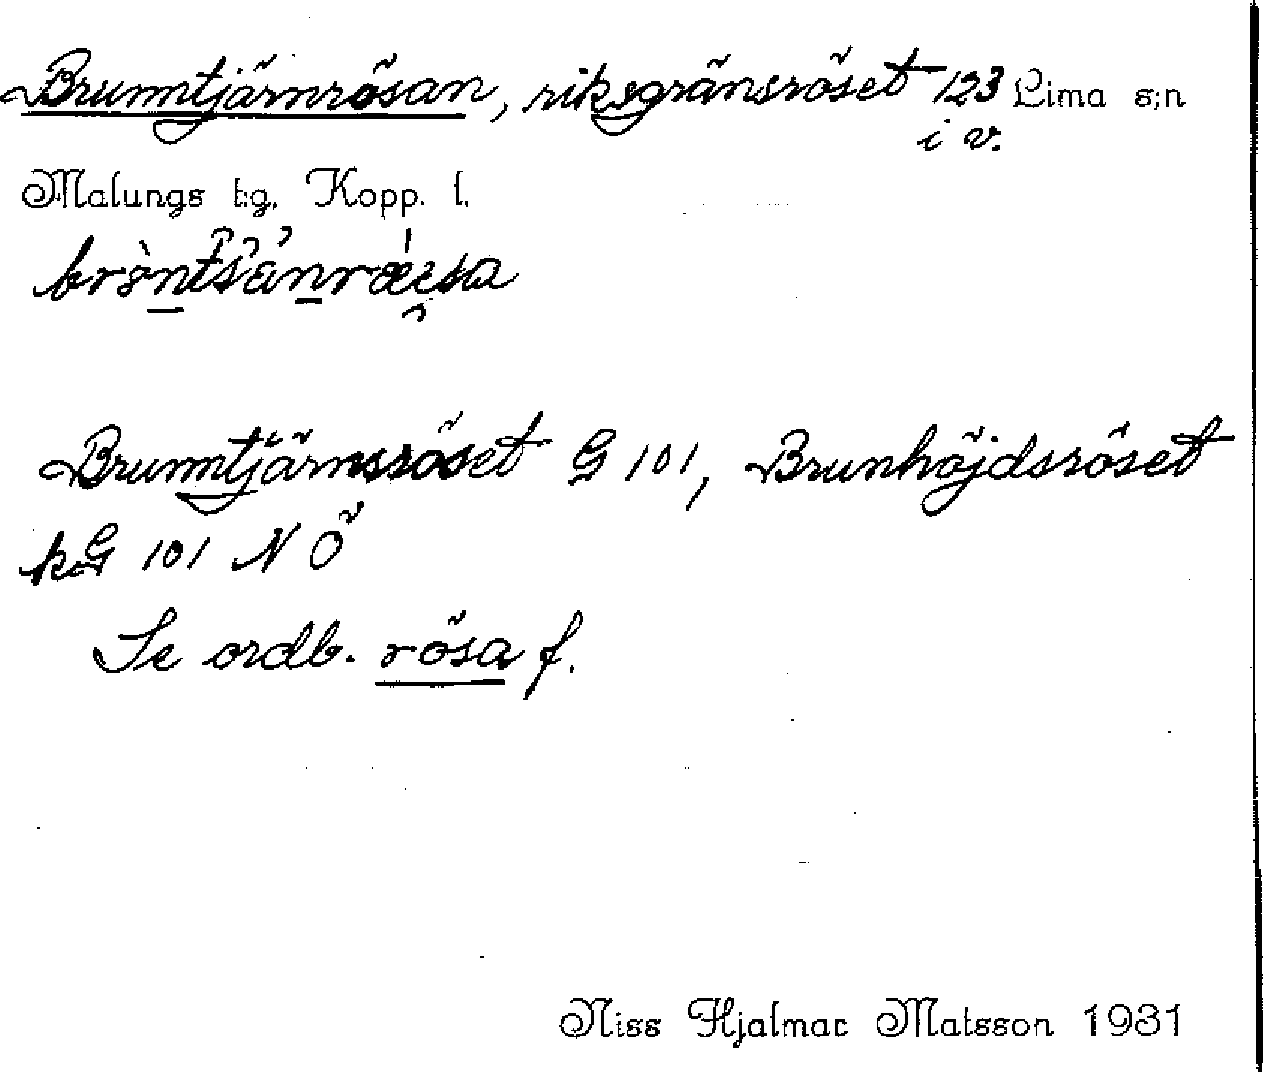 Brunntjärnrösan, riksgränsröset 123 Lima s:n
i v.
Malungs t:g. Kopp. l.
Brunntjärnsröset G 101, Brunhöjdsröset
kG 101 N Ö
Se ordb. rösa f.
Niss Hjalmar Matsson 1931